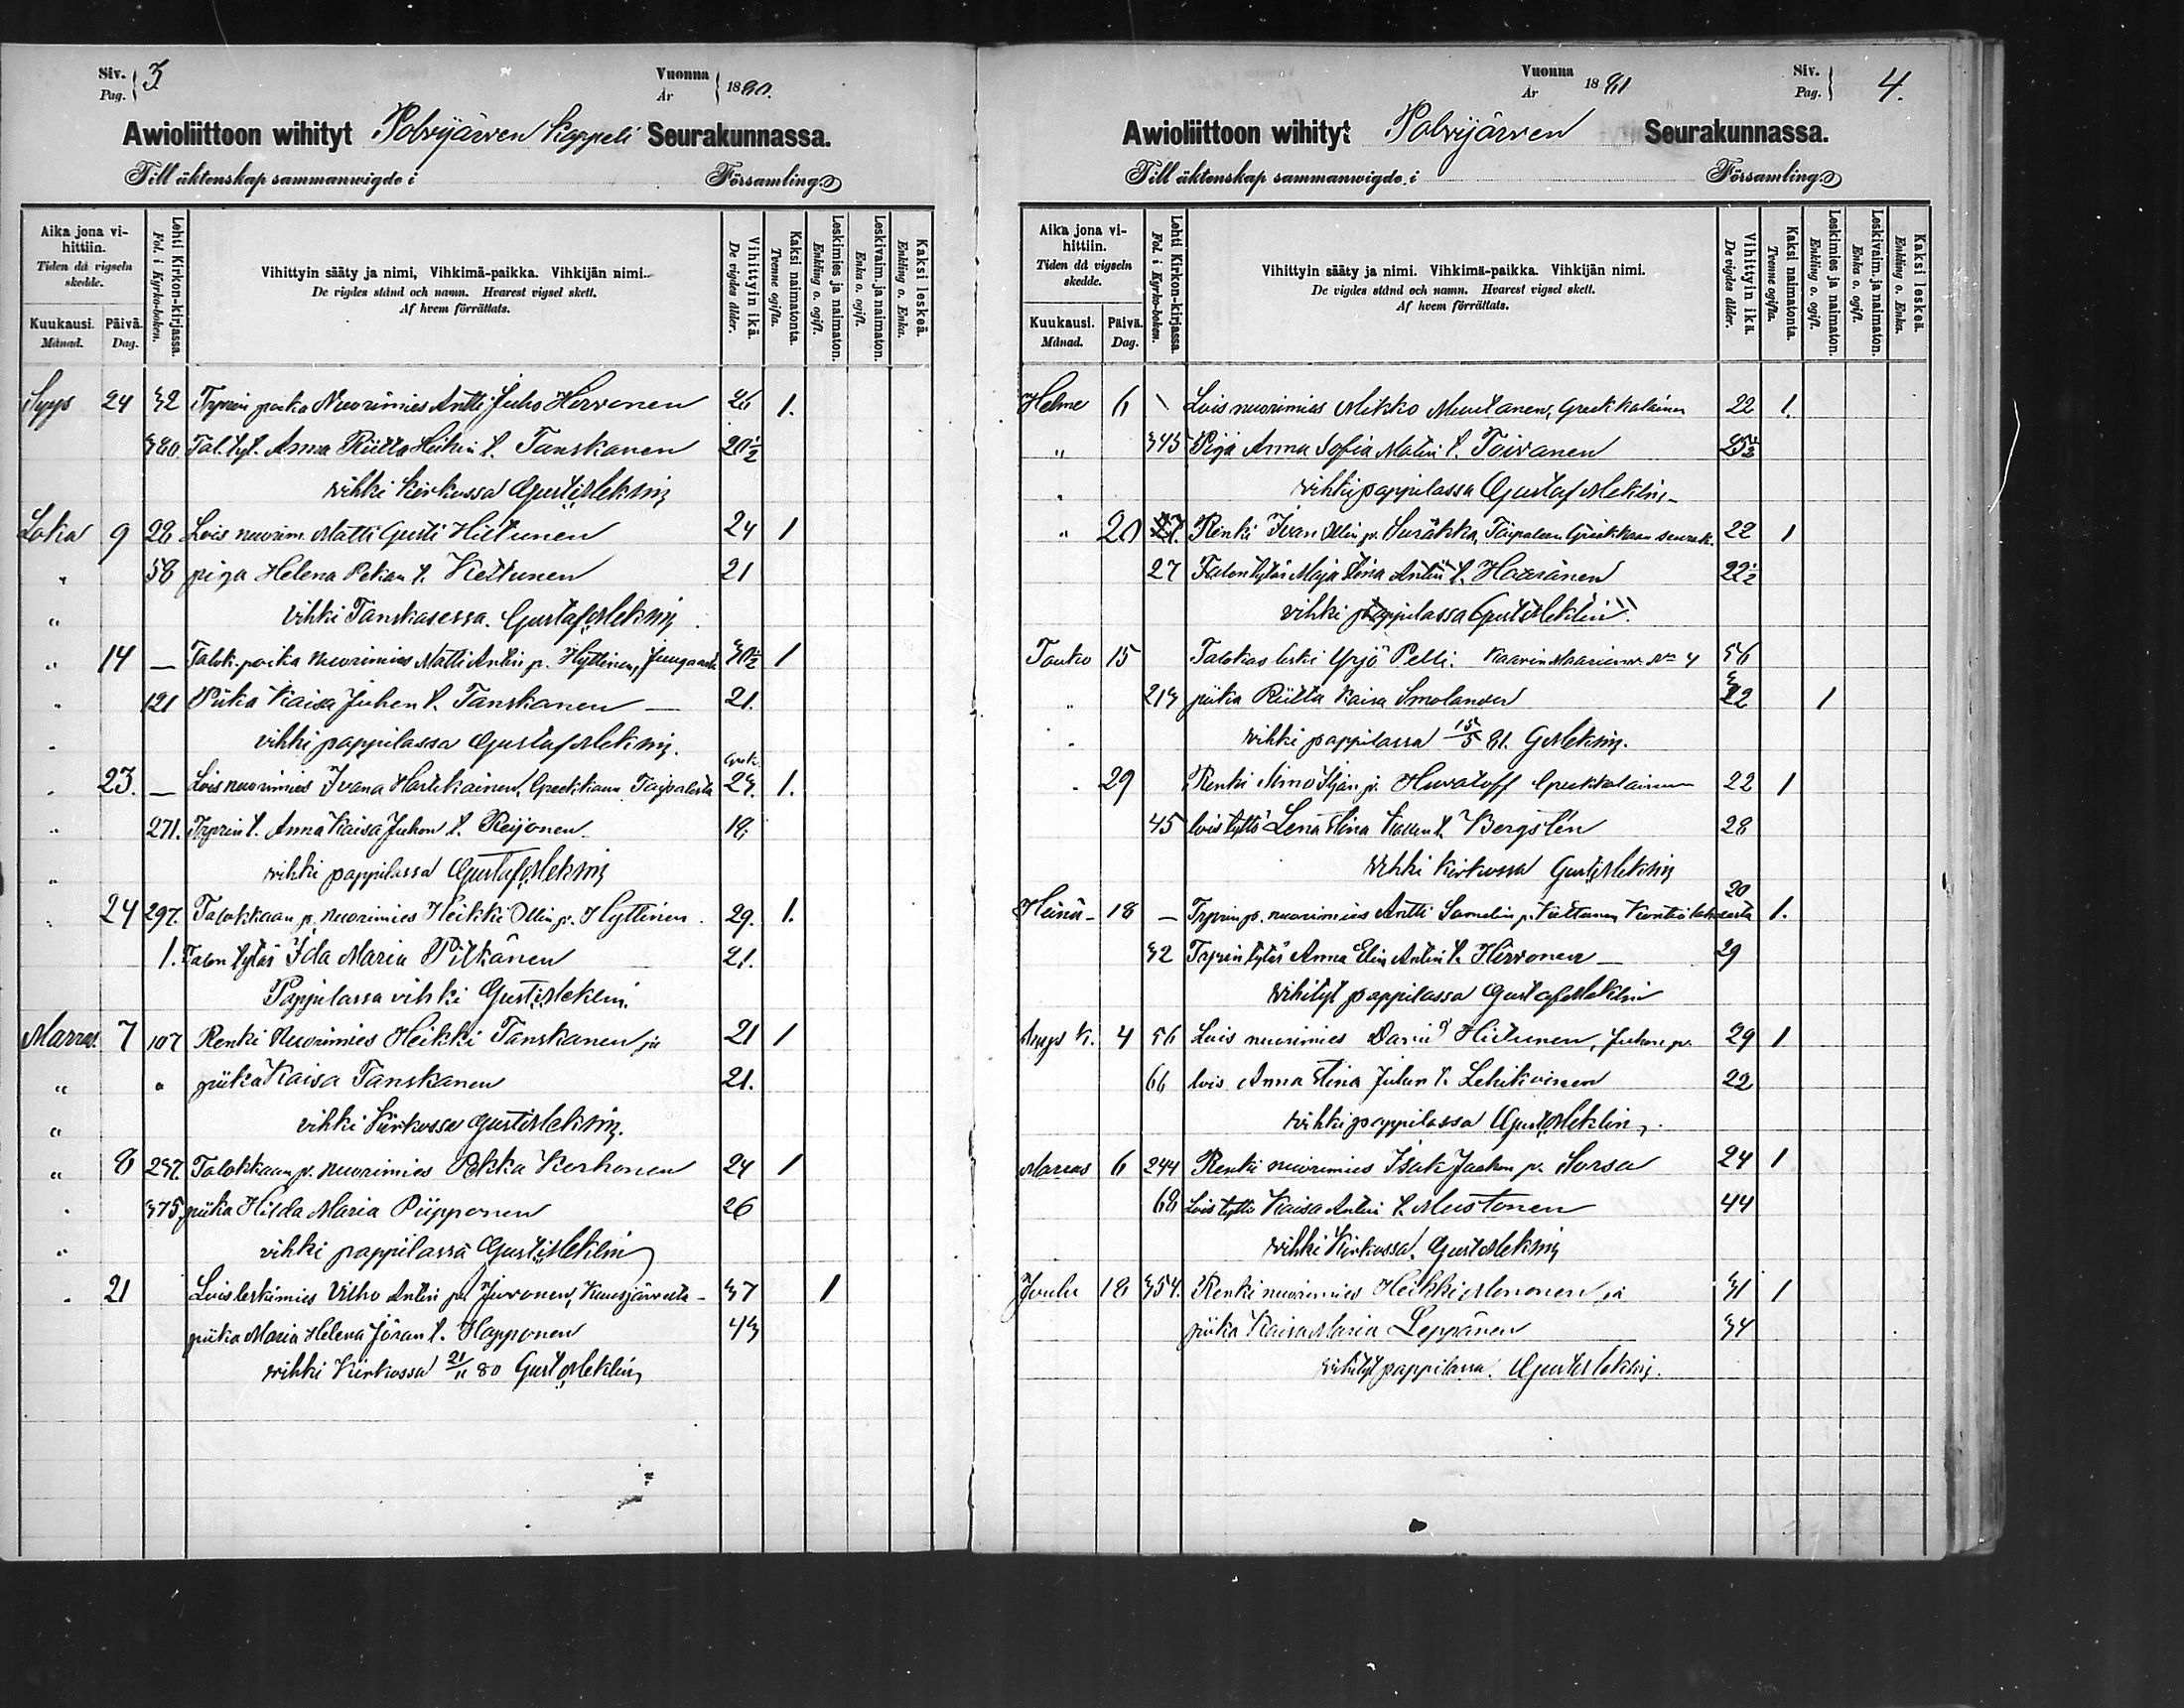 Siv. Pag. 3
Vuonna År 1880.
Awioliittoon wihityt Polvijärven Kappeli Seurakunnassa.
Till äktenskap sammanwigde i Församling
Aika jona vihittiin. Tiden då vigseln skedde.
Kuukausi. Månad.
Päivä. Dag.
Lehti Kirkon-kirjassa. Fol. i Kyrko-boken.
Vihittyin sääty ja nimi, Vihkimä-paikka. Vihkijän nimi.
De vigdes stånd och namn. Hvarest vigsel skett.
Af hvem förrättats.
Vihittyin ikä. De vigdes ålder.
Kaksi naimatonta. Tvenne ogifta.
Leskimies ja naimaton. Enkling o. ogift.
Leskivaim. ja naimaton. Enka o. ogift.
Kaksi leskeä. Enkling o. Enka.
Syys 24 32 poika Nuorimies Antti Juho Hirvonen 26 1.
380. Tal. tyt. Anna Riitta Heikin t. Tanskanen 20 1/2
vihki Kirkossa Gust. Meklin
Loka 9 28 Lois nuorim. Matti Gusti Hiltunen 24 1
" 58 piga Helena Pekan t. Kettunen 21
" vihki Tanskasessa. Gustaf Meklin
" 14 — Talok. poika nuorimies Matti Antin p. Hyttinen, Juugasta 30 1/2 1
" 121 Piika Kaisa Juhon t. Tanskanen — 21.
" vihki pappilassa Gustaf Meklin.
" 23. — Lois nuorimies Ivana Harkkainen, Greekkaan Taipaleesta 23. 1.
" 271. t. Anna Kaisa Juhon t. Reijonen 18
" vihki pappilassa Gustaf Meklin
" 24 297. Talokkaan p. nuorimies Heikki Ollin p. Hyttinen 29. 1.
1. Talon tytär Ida Maria Pitkänen 21.
Pappilassa vihki Gust. Meklin.
Marras 7 107 Renki Nuorimies Heikki Tanskanen ja 21 1
" " piika Kaisa Tanskanen 21.
" vihki Kirkossa Gust. Meklin.
" 8 237. Talokkaan p. nuorimies Pekka Korhonen 24 1
" 375. piika Hilda Maria Piipponen 26
" vihki pappilassa Gust. Meklin
" 21 Lois leskimies Vilho Antin p. Juvonen, Kuusjärveltä — 37 1
piika Maria Helena Jöran t. Happonen 43
vihki Kirkossa 21/11 80 Gust. Meklin
Vuonna År 1881
Siv. Pag. 4.
Awioliittoon wihityt Polvijärven Seurakunnassa.
Till äktenskap sammanwigde i Församling
Aika jona vihittiin. Tiden då vigseln skedde.
Kuukausi. Månad.
Päivä. Dag.
Lehti Kirkon-kirjassa. Fol. i Kyrko-boken.
Vihittyin sääty ja nimi. Vihkimä-paikka. Vihkijän nimi.
De vigdes stånd och namn. Hvarest vigsel skett.
Af hvem förrättats.
Vihittyin ikä. De vigdes ålder.
Kaksi naimatonta. Tvenne ogifta.
Leskimies ja naimaton. Enkling o. ogift.
Leskivaim. ja naimaton. Enka o. ogift.
Kaksi leskeä. Enkling o. Enka.
Helme 6 Lois nuorimies Mikko Muutanen, Greekkalainen 22 1.
" 345 Piga Anna Sofia Matin t. Toivanen
" vihki pappilassa Gustaf Meklin
" 20 Renki Ivan Ollin p. Surakka, Taipaleen Greekkaan seurak. 22 1
27 Talon tytär Maja Stina Antin t. Haaranen 22 1/2
vihki pappilassa Gust. Meklin
Touko 15 Talokas leski Yrjö Pelli. Kaavin Maarianv. No 4 56
" 213 piika Riitta Kaisa Smolander 1
" vihki pappilassa 15/5 81. G. Meklin.
" 29 Renki Simo Iljan p. Huvatoff Greekkalainen 22 1
45 lois tyttö Lena Stina Kallen t. Bergstén 28
vihki Kirkossa Gust. Meklin
Heinä — 18 — p. nuorimies Antti Samelin p. Kiettunen Kontiolahdesta 20 1.
32 tytär Anna Elin Antin t. Hirvonen — 29
vihityt pappilassa Gustaf Meklin
Syys k. 4 56 Lois nuorimies David Hiltunen, Juhon p. 29 1
66 lois Anna Stina Juhon t. Lehikoinen 22
vihki pappilassa Gust. Meklin
Marras 6 244 Renki nuorimies Isak Jaakon p. Sorsa 24 1
68 Lois tyttö Kaisa Antin t. Mustonen 44
vihki Kirkossa. Gust. Meklin
Joulu 18 354. Renki nuorimies Heikki Mononen ja 31 1
piika Kaisa Maria Leppänen 34
vihityt pappilassa. Gust. Meklin.